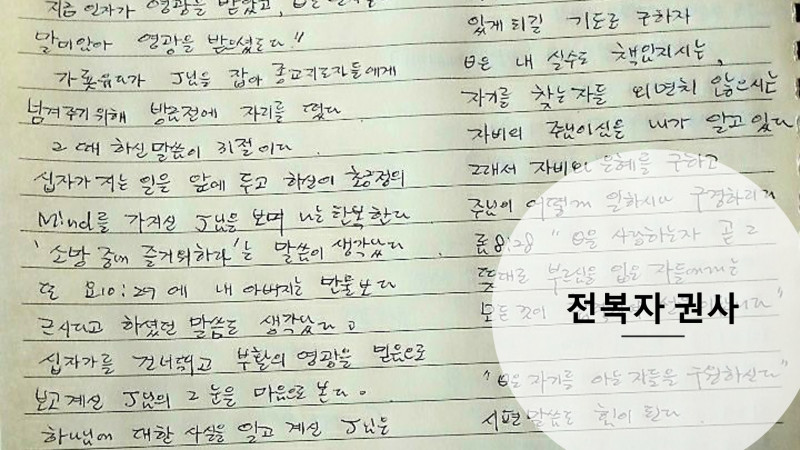 지금 인자가 영광을 받았고,
말미암아 영광을 받으셨도다."
가롯유다가 J님을 잡아 종교지도자들에게
넘겨주기 위해 방금전에 자리를 떴다
그 때 하신 말씀이 31절이다.
십자가 지는 일을 앞에 두고 하실이 초긍정의
Mind를 가지신 J님을 보며 나는 탄복한다
'소망 중에 즐거워하라'는 말씀이 생각났다.
또 요10:29에 내 아버지는 만물보다
크시다고 하셨던 말씀도 생각났다.
십자가를 건너뛰고 부활의 영광을 믿음으로
보고 계신 J님의 그 눈을 마음으로 본다.
하나님에 대한 사실을 알고 계신 J님은
있게 되길 기도로 구하자
은 내 실수도 책임지시는,
자기를 찾는 자들 외면치 않으시는
자비의 주님이심을 내가 알고 있다
그래서 자비와 은혜를 구하고
주님이 어떻게 일하시나 구경하리라
롬8:28 " 을 사랑하는자 곧 그
뜻대로 부르심을 입은 자들에게는
모든 것이
"은 자기를 아는 자들을 구원하신다"
시편 말씀도 힘이 된다.
전복자 권사